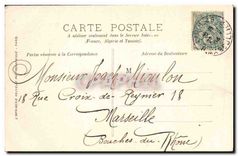 CARTE POSTALE
A utiliser seulement dans le Service Intérieur
(France, Algérie et Tunisie)
Partie réservée à la Correspondance
Adresse du Destinataire
M
Monsieur Joseph
18 Rue Croix de Reynier 18
Marseille
Bouches du Rhône